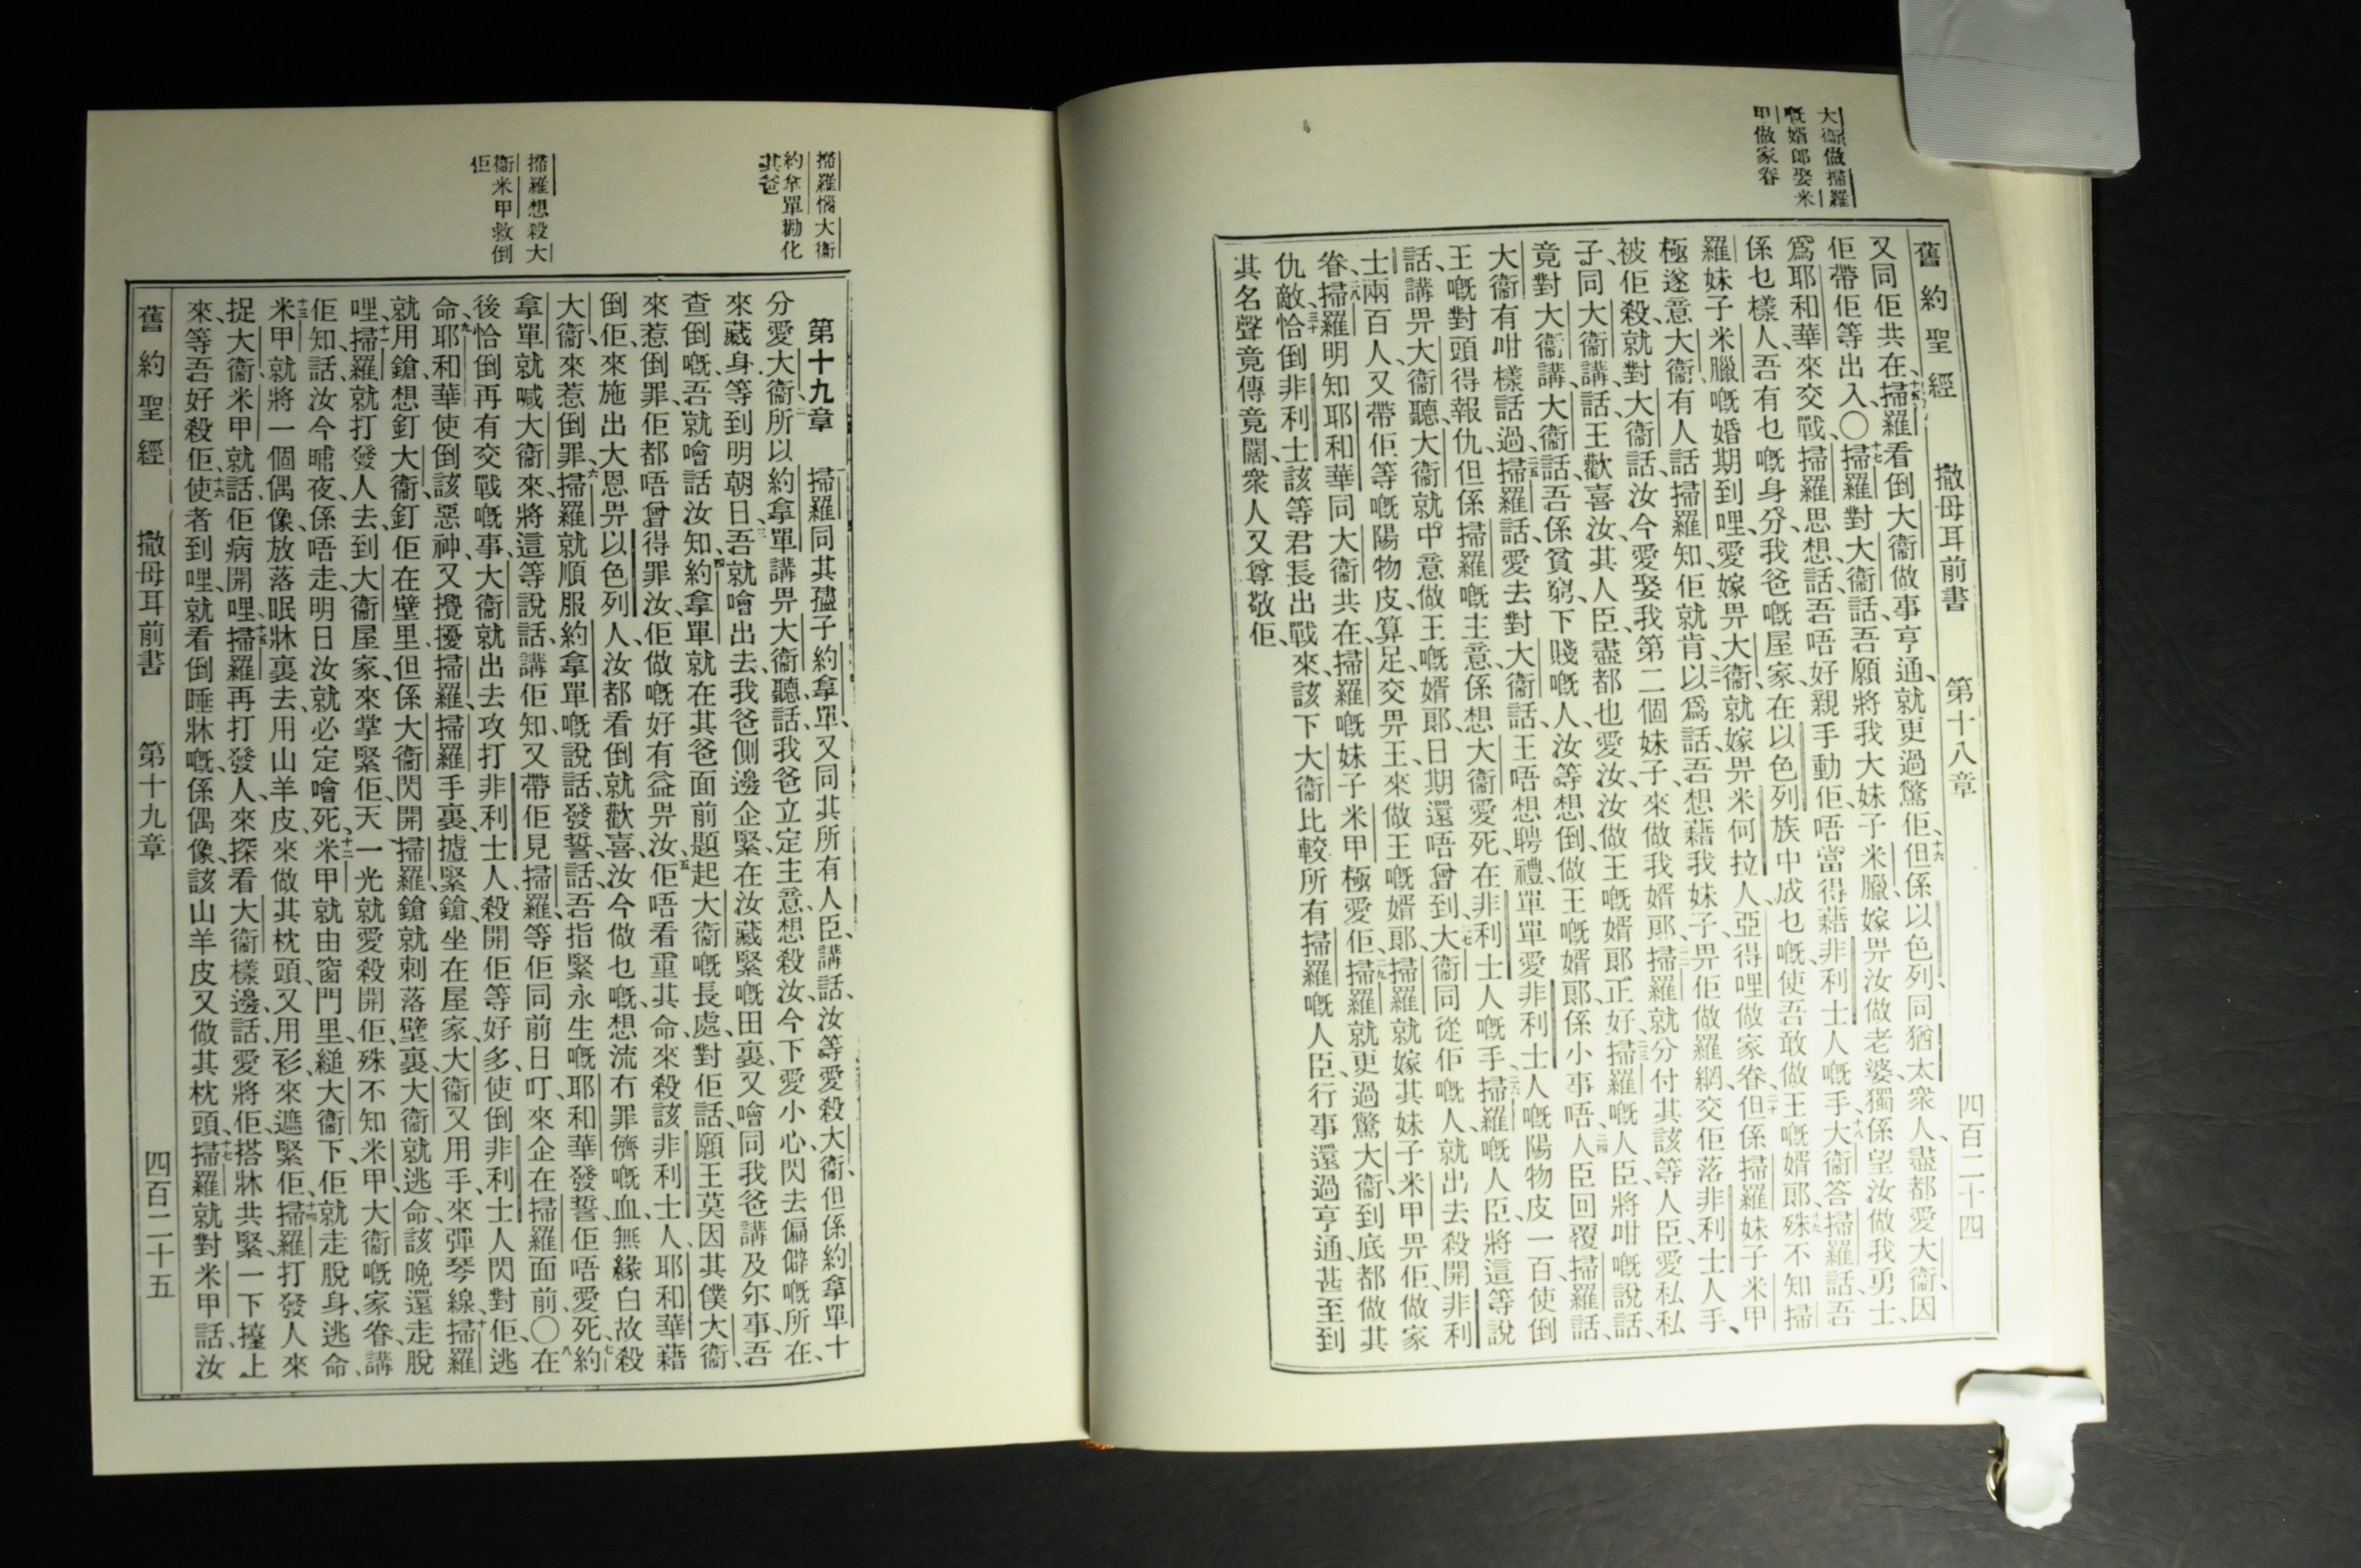 大衞做掃羅
嘅婿郎娶米
甲做家眷
舊約聖經 撒母耳前書 第十八章 四百二十四
又同佢共在、十五掃羅看倒大衞做事亨通、就更過驚佢、十六但係以色列、同猶太衆人、盡都愛大衞、因
佢帶佢等出入、〇十七掃羅對大衞話、吾願將我大妹子米臘、嫁畀汝做老婆、獨係望汝做我勇士、
爲耶和華來交戰、掃羅思想話、吾唔好親手動佢、唔當得藉非利士人嘅手、十八大衞答掃羅話、吾
係乜樣人、吾有乜嘅身分、我爸嘅屋家、在以色列族中成乜嘅、使吾敢做王嘅婿郎、十九殊不知掃
羅妹子米臘嘅婚期到哩、愛嫁畀大衞、就嫁畀米何拉人、亞得哩做家眷、二十但係掃羅妹子米甲
極遂意大衞、有人話掃羅知、佢就肯以爲話、吾想藉我妹子、畀佢做羅網、交佢落非利士人手、
被佢殺、就對大衞話、汝今愛娶我第二個妹子、來做我婿郎、掃羅就分付其該等人臣、愛私私
子同大衞講、話王歡喜汝、其人臣、盡都也愛汝、汝做王嘅婿郎正好、掃羅嘅人臣、將咁嘅說話、
竟對大衞講、大衞話、吾係貧窮、下賤嘅人、汝等想倒、做王嘅婿郎、係小事唔、人臣回覆掃羅話、
大衞有咁樣話過、掃羅話、愛去對大衞話、王唔想聘禮、單單愛非利士人嘅陽物皮一百、使倒
王嘅對頭得報仇、但係掃羅嘅主意、係想大衞愛死、在非利士人嘅手、掃羅嘅人臣、將這等說
話、講畀大衞聽、大衞就中意做王嘅婿郎、日期還唔曾到、大衞同從佢嘅人、就出去殺開非利
士兩百人、又帶佢等嘅陽物皮、算足、交畀王、來做王嘅婿郎、掃羅就嫁其妹子米甲畀佢、做家
眷、掃羅明知耶和華同大衞共在、掃羅嘅妹子米甲極愛佢、掃羅就更過驚大衞、到底都做其
仇敵、三十恰倒非利士該等君長出戰來、該下大衞比較所有掃羅嘅人臣、行事還過亨通、甚至到
其名聲竟傳竟闊、衆人又尊敬佢、
掃羅惱大衞
約拿單勸化
其爸
掃羅想殺大
衞米甲救倒
佢
第十九章 掃羅同其孻子約拿單、又同其所有人臣、講話、汝等愛殺大衞、但係約拿單十
分愛大衞、二所以約拿單講畀大衞聽、話、我爸立定主意、想殺汝、今下愛小心閃去偏僻嘅所在、
來藏身、等到明朝日、三吾就噲出去、我爸側邊企緊、在汝藏緊嘅田裏、又噲同我爸講及尔事、吾
查倒嘅、吾就噲話汝知、四約拿單就在其爸面前題起大衞嘅長處、對佢話、願王莫因其僕大衞、
來惹倒罪、佢都唔曾得罪汝、佢做嘅好有益畀汝、五佢唔看重其命、來殺該非利士人、耶和華藉
倒佢、來施出大恩畀以色列人、汝都看倒就歡喜、汝今做乜嘅、想流冇罪儕嘅血、無緣白故殺
大衞、來惹倒罪、六掃羅就順服約拿單嘅說話、發誓話、吾指緊永生嘅耶和華發誓、佢唔愛死、七約
拿單就喊大衞來、將這等說話講佢知、又帶佢見掃羅、等佢同前日叮、來企在掃羅面前、〇八在
後恰倒再有交戰嘅事、大衞就出去攻打非利士人、殺開佢等好多、使倒非利士人閃對佢、逃
命、九耶和華使倒該惡神、又攪擾掃羅、掃羅手裏、攎緊鎗、坐在屋家、大衞又用手、來彈琴線、十掃羅
就用鎗想釘大衞、釘佢在壁里、但係大衞閃開掃羅、鎗就刺落壁裏、大衞就逃命、該晚還走脫
哩、十一掃羅就打發人去、到大衞屋家、來掌緊佢、天一光就愛殺開佢、殊不知米甲、大衞嘅家眷、講
佢知、話、汝今晡夜、係唔走、明日汝就必定噲死、十二米甲就由窗門里、縋大衞下、佢就走脫身、逃命、
十三米甲就將一個偶像、放落眠牀裏去、用山羊皮、來做其枕頭、又用衫來遮緊佢、十四掃羅打發人來
捉大衞、米甲就話、佢病開哩、十五掃羅再打發人、來探看大衞樣邊、話、愛將佢、搭牀共緊、一下擡上
來、等吾好殺佢、十六使者到哩、就看倒睡牀嘅、係偶像、該山羊皮又做其枕頭、十七掃羅就對米甲話、汝
舊約聖經 撒母耳前書 第十九章 四百二十五